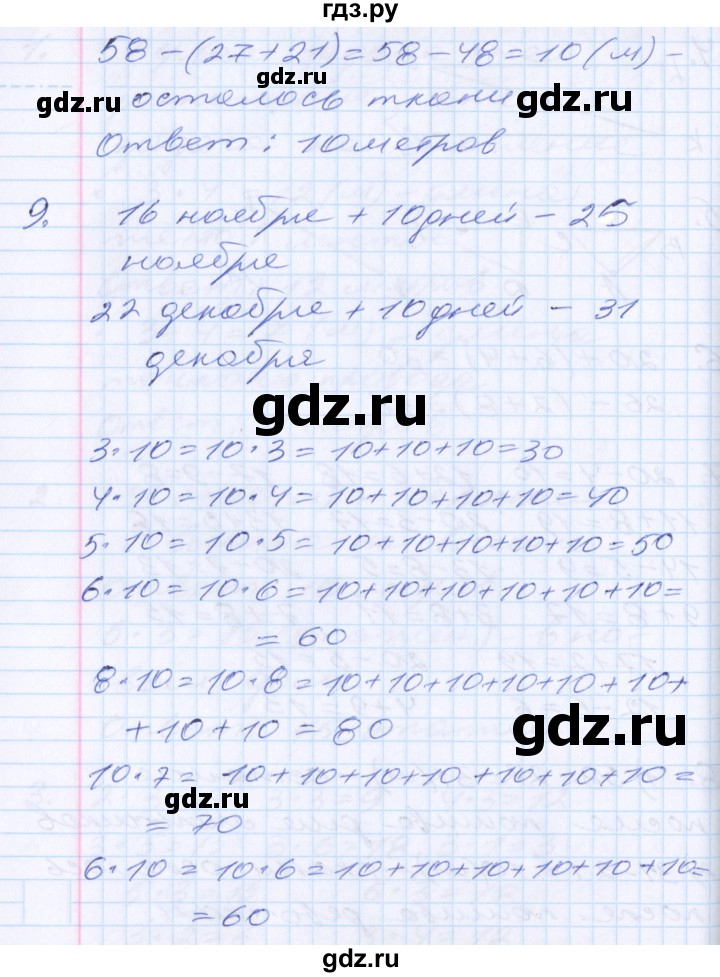 гдз.ру
58-(27+21)=58-48=10(м)-
gdz.ru
осталось ткани
gdz.ru
Ответ: 10 метров
9. 16 ноября + 10 дней - 25
ноября
22 декабря + 10 дней - 31
декабря
gdz.ru
3·10=10·3=10+10+10=30
4·10=10·4=10+10+10+10=40
5·10=10·5=10+10+10+10+10=50
6·10=10·6=10+10+10+10+10+10=
=60
8·10=10·8=10+10+10+10+10+10+
+10+10=80
gdz.ru
10·7=10+10+10+10+10+10+10=
gdz.ru
=70
6·10=10·6=10+10+10+10+10+10=
=60
gdz.ru